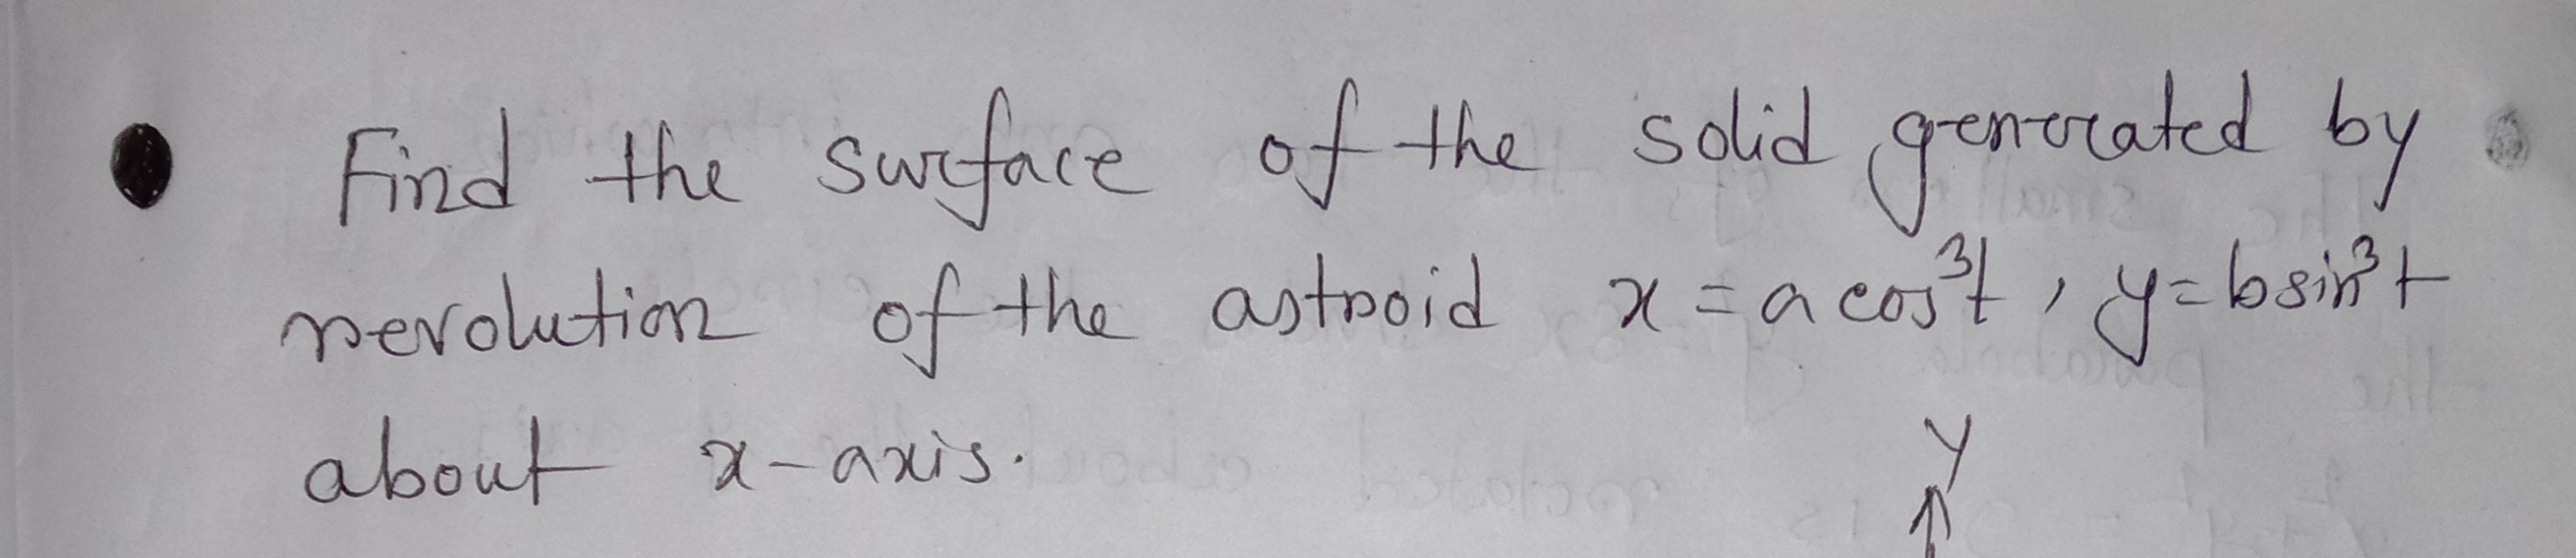 Find the surface of the solid generated by
revolution of the astroid x = a cos³t, y = b sin³t
about x-axis.
y